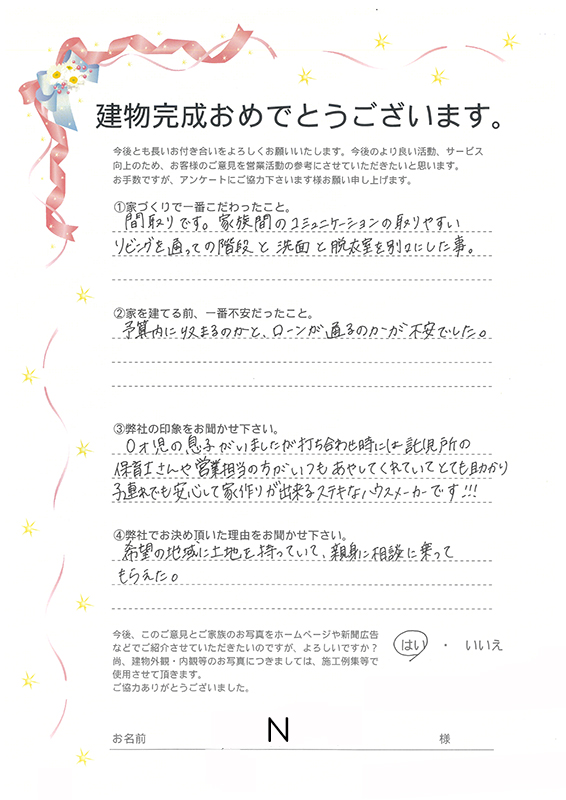 建物完成おめでとうございます。
今後とも長いお付き合いをよろしくお願いいたします。今後のより良い活動、サービス
向上のため、お客様のご意見を営業活動の参考にさせていただきたいと思います。
お手数ですが、アンケートにご協力下さいます様お願い申し上げます。
①家づくりで一番こだわったこと。
間取りです。家族間のコミュニケーションの取りやすい
リビングを通っての階段と洗面と脱衣室を別々にした事。
②家を建てる前、一番不安だったこと。
予算内に収まるのかと、ローンが通るのかが不安でした。
③弊社の印象をお聞かせ下さい。
0才児の息子がいましたが打ち合わせ時には託児所の
保育士さんや営業担当の方がいつもあやしてくれていてとても助かり
子連れでも安心して家作りが出来るステキなハウスメーカーです!!!
④弊社でお決め頂いた理由をお聞かせ下さい。
希望の地域に土地を持っていて、親身に相談に乗って
もらえた。
今後、このご意見とご家族のお写真をホームページや新聞広告
などでご紹介させていただきたいのですが、よろしいですか?
はい ・ いいえ
尚、建物外観・内観等のお写真につきましては、施工例集等で
使用させて頂きます。
ご協力ありがとうございました。
お名前 N 様